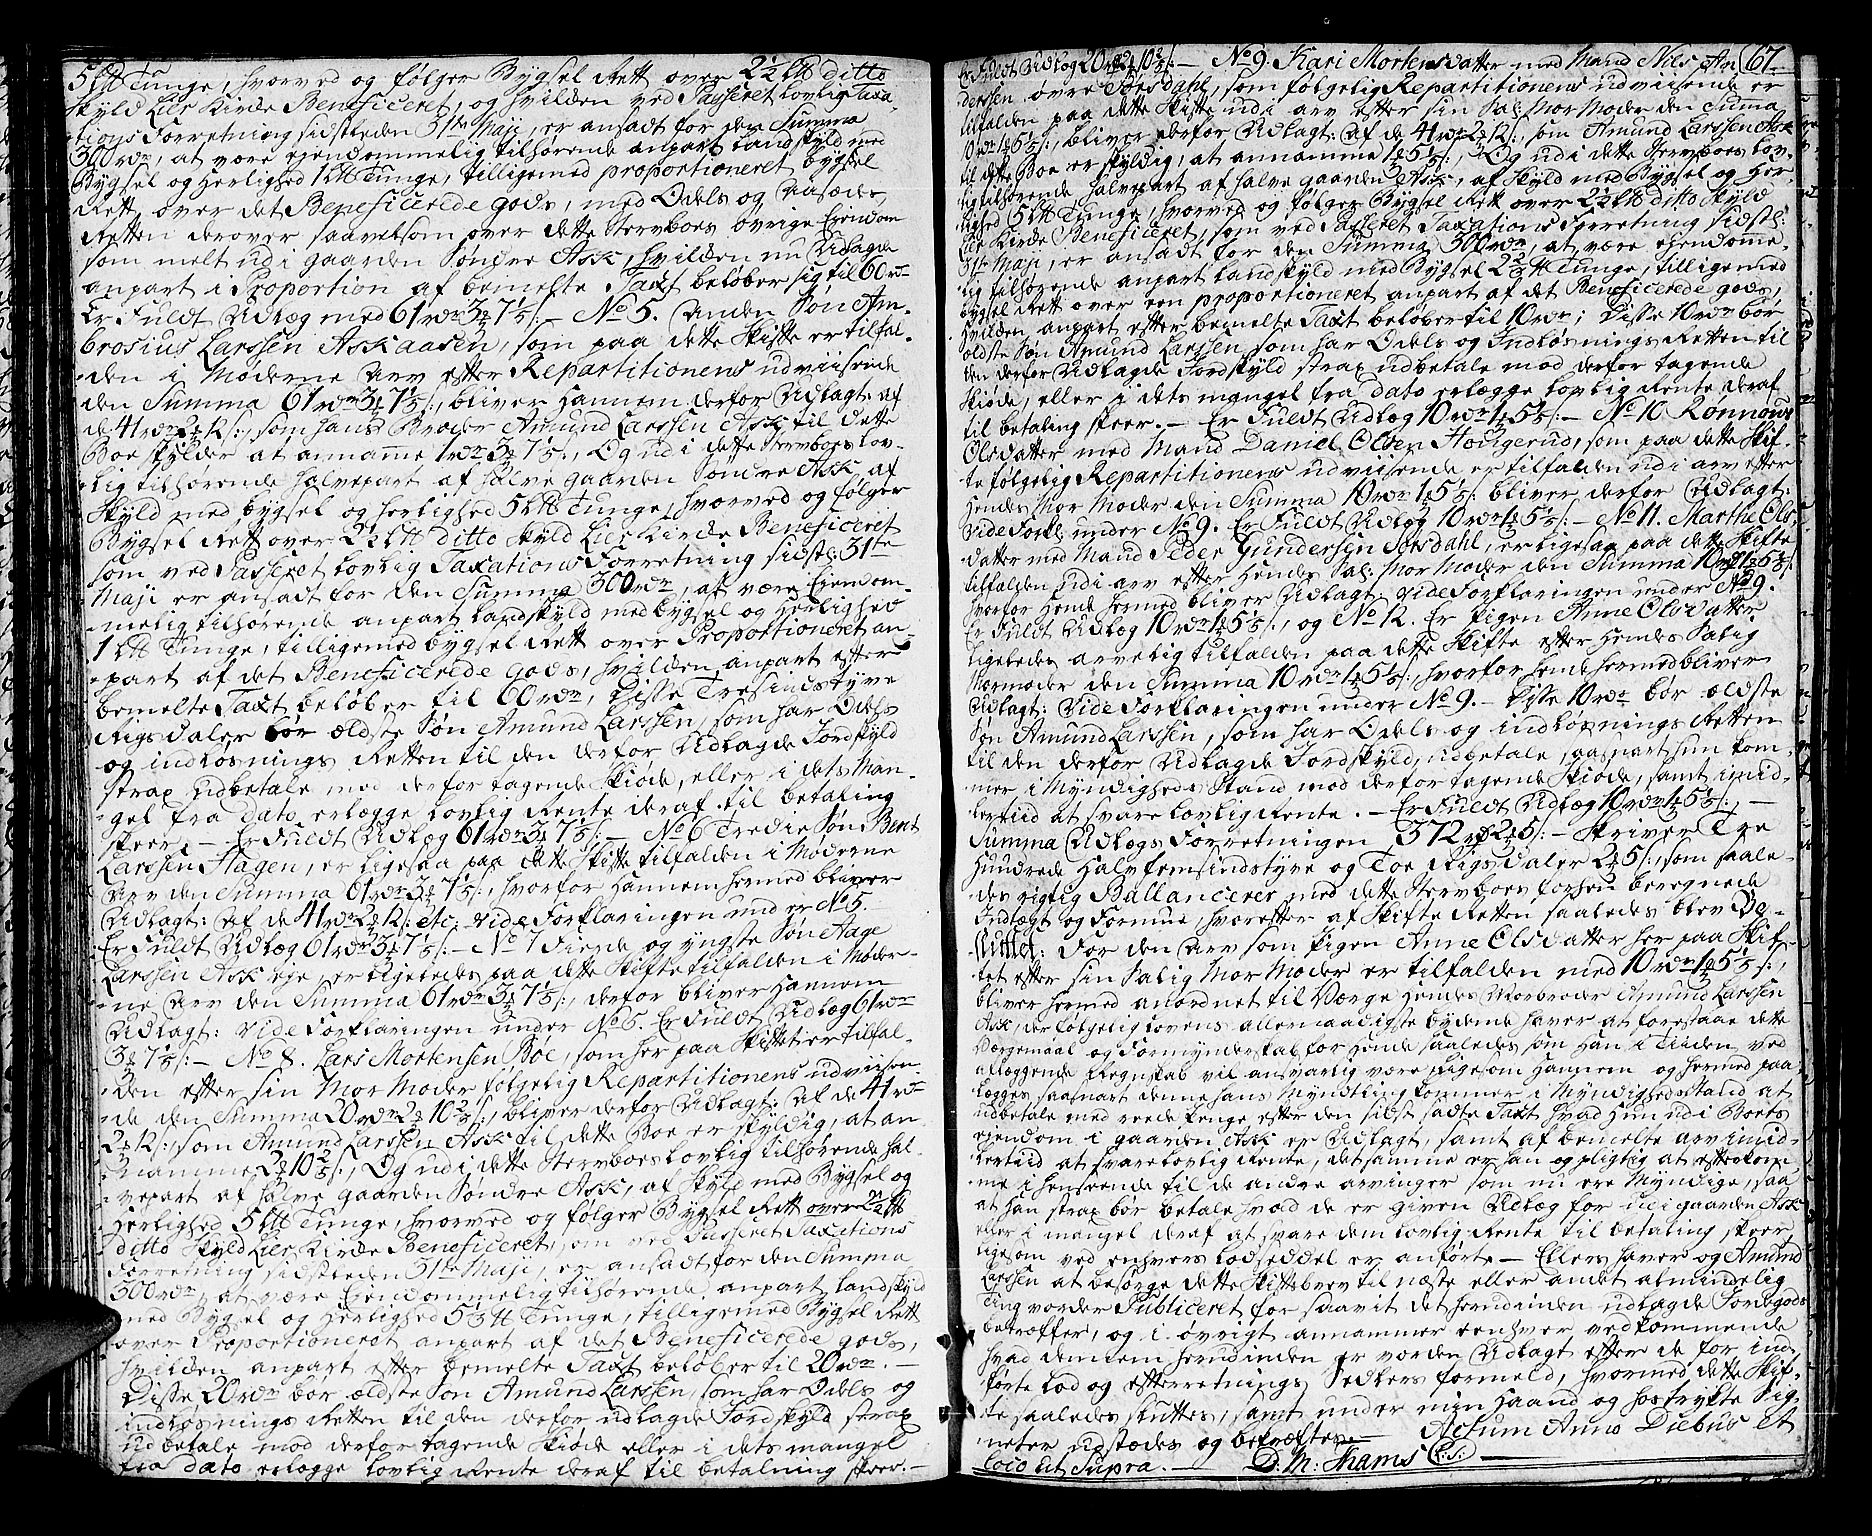 5 L℔ Tunge, hvorved og følger Bygsel Rett over 2½ L℔ ditto
Skyld Lier Kirke Beneficeret, og hvilden ved Passeret lovlig Taxa-
tions Forretning sidstleden 31te Maji, er ansadt for den Summa
300 rdr, at være ejendommelig tilhørende anpart Landskyld med
Bygsel og Herlighed 1 L℔ Tunge, tilligemed proportioneret bygsel
Rett over det Beneficerede gods, med Odels og Aasædes
Retten derover saavelsom over dette Sterfboes øvrige Ejendom
som melt udi gaarden Søndre Ask, hvilden nu Udlagde
anpart i Proportion af bemelte Taxt beløber sig til 60 rdr
Er Fuldt Udlæg med 61 rdr 3 7⅕ s:- No 5. Anden Søn Am-
brosius Larssen Askaasen, som paa dette Skifte er tilfal-
den i Møderne Arv efter Repartitionens udviisende
den Summa 61 rdr 3 7⅕ s:, bliver hannem derfor Udlagt: af
de 41 rdr 2 12 s:, som hans Broder Amund Larssen Ask til dette
Boe skylder at annamme 1 rdr 3 7⅕ s:, Og udi dette Sterfboes lov-
lig tilhørende halvepart af halve gaarden Søndre Ask af
Skyld med bygsel og herlighed 5 L℔ Tunge, hvorved og følger
Bygsel Rett over 2½ L℔ ditto Skyld Lier Kirke Beneficeret
som ved Passeret lovlig Taxations Forretning sidstl: 31te
Maji er ansadt for den Summa 300 rdr, at være Ejendom-
melig tilhørende anpart Landskyld med bygsel og Herlighed
1 L℔ Tunge, tilligemed bygsel Rett over Proportioneret an-
part af det Beneficerede gods, hvilden anpart efter
bemelte Taxt beløber til 60 rdr, Disse Tresindstyve
Rigsdaler bør ældste Søn Amund Larssen, som har Odels
og indløsnings Retten til den derfor Udlagde Jordskyld
strax udbetale mod derfor tagende Skiøde, eller i dets Man-
gel fra dato erlægge lovlig Rente deraf til betaling
skeer. - Er Fuldt Udlæg 61 rdr 3 7⅕ s:- No 6 Tredie Søn Bent
Larssen Hagen, er ligesaa paa dette Skifte tilfalden i Møderne
Arv den Summa 61 rdr 3 7⅕ s:, hvorfor hannem hermed bliver
Udlagt: Af de 41 rdr 2 12 s: etc: vide Forklaringen under No 5.
Er Fuldt Udlæg 61 rdr 3 7⅕ s:- No 7 Fierde og yngste Søn Aage
Larssen Ask eje, er ligeledes paa dette Skifte tilfalden i Møder-
ne Arv den Summa 61 rdr 3 7⅕ s:, derfor bliver hannem
Udlagt: vide Forklaringen under No 5. Er Fuldt Udlæg 61 rdr
3 7⅕ s:- No 8. Lars Mortensen Bøe, som her paa Skiftet er tilfal-
den efter sin Mor Moder følgelig Repartitionens udviisen-
de den Summa 20 rdr 2 10⅖ s:, bliver derfor Udlagt: af de 41 rdr
2 12 s:, som Amund Larssen Ask til dette Boe er skyldig, at an-
namme 2 10⅖ s:, Og udi dette Sterfboes lovlig tilhørende hal-
vepart af halve gaarden Søndre Ask, af skyld med Bygsel og
Herlighed 5 L℔ Tunge, hvorved og følger Bygsel Rett over 2½ L℔
ditto Skyld Lier Kirke Beneficeret, som ved Passeret Taxations
Forretning sidstleden 31te Maji, er ansadt for den Summa
300 rdr, at være Ejendommelig tilhørende anpart landskyld
med Bygsel og Herlighed 5⅓ ℔ Tunge, tilligemed Bygsel Rett
over Proportioneret anpart af det Beneficerede gods,
hvilden anpart efter bemelte Taxt beløber til 20 rdr. -
Disse 20 rdr bør ældste Søn Amund Larssen, som har Odels og
indløsnings Retten til den derfor udlagde Jordskyld strax
udbetale mod derfor tagende Skiøde eller i dets mangel
fra dato erlægge lovlig Rente deraf til betalning skeer. -
Er Fuldt Udlæg 20 rdr 2 10⅖ s:- No 9. Kari Mortensdatter med Mand Nils An-
67.
derssen øvre Sørsdahl, som følgelig Repartitionens udviisende er
tilfalden paa dette Skifte udi arv efter sin Sal: Mor Moder den Suma
10 rdr 1 5⅕ s:, bliver derfor Udlagt: Af de 41 rdr 2 12 s:, som Amund Larssen Ask
til dette Boe er skyldig, at annamme 1 5⅕ s:, Og udi dette Sterfboes lov-
lig tilhørende halvepart af halve gaarden Ask, af skyld med Bygsel og Her-
lighed 5 L℔ Tunge, hvorved og følger Bygsel Rett over 2½ L℔ ditto Skyld
Lier Kirke Beneficeret, som ved Passeret Taxations Forretning sidstl:
31te Maji, er ansadt for den Summa 300 rdr, at være ejendomme-
lig tilhørende anpart landskyld med Bygsel 2⅔ ℔ Tunge, tilligemed
bygsel Rett over een proportioneret anpart af det Beneficerede gods,
hvilden anpart efter bemelte Taxt beløber til 10 rdr; Disse 10 rdr bør
ældste Søn Amund Larssen, som har Odels og Indløsnings Retten til
den derfor Udlagde Jordskyld strax udbetale mod derfor tagende
Skiøde, eller i dets mangel fra dato erlægge lovlig Rente deraf
til betaling skeer. - Er Fuldt Udlæg 10 rdr 1 5⅕ s:- No 10 Rønnow
Olsdatter med Mand Daniel Olsen Houjgerud, som paa dette Skif-
te følgelig Repartitionens udviisende er tilfalden udi arv efter
Hendes Mor Moder den Summa 10 rdr 1 5⅕ s: bliver derfor Udlagt:
vide Forkl: under No 9. Er Fuldt Udlæg 10 rdr 1 5⅕ s:- No 11. Marthe Ols-
datter med Mand Peder Gundersen Sørsdahl, er ligesaa paa dette Skifte
tilfalden udi arv efter Hendes Sal: Mor Moder den Summa 10 rdr 1 5⅕ s:
hvorfor Hende hermed bliver Udlagt vide Forklaringen under No 9.
Er Fuldt Udlæg 10 rdr 1 5⅕ s:, og No 12. Er Pigen Anne Olsdatter
Ligeledes arvelig tilfalden paa dette Skifte efter Hendes Salig
Mormoder den Summa 10 rdr 1 5⅕ s:, hvorfor hende hermed bliver
Udlagt: Vide Forklaringen under No 9. - Disse 10 rdr bør ældste
Søn Amund Larssen, som har Odels og indløsnings Retten
til den derfor Udlagde Jordskyld, udbetale, saasnart hun kom-
mer i Myndigheds Stand mod derfor tagende Skiøde, samt imid-
lertiid at svare lovlig Rente. - Er Fuldt Udlæg 10 rdr 1 5⅕ s:, -
Summa Udlægs Forretningen 372 rdr 2 5 s:- Skriver Tre
Hundrede Halvfemsindstyve og Toe Rigsdaler 2 5 s:, som saale-
des rigtig Ballancerer med dette Sterfboes forhen beregnede
Indtægt og Formue, hvorefter af Skifte Retten saaledes blev Be-
sluttet: For den Arv som Pigen Anne Olsdatter her paa Skif-
tet efter sin Salig Mor Moder er tilfalden med 10 rdr 1 5⅕ s:,
bliver hermed anordnet til Værge Hendes Morbroder Amund Larssen
Ask, der følgelig Lovens allernaadigste bydende haver at forestaae dette
Værgemaal og Formynderskab for Hende saaledes som Han i Tiiden ved
aflæggende Regnskab vil ansvarlig være ligesom Hannem og hermed paa-
lægges, saasnart denne hans Myndtling kommer i Myndigheds Stand at
udbetale med reede Penge efter den sidst sadte Taxt hvad Hun udi Boets
ejendom i gaarden Ask er Udlagt, samt af bemelte arv imid-
lertiid at svare lovlig Rente, det samme er han og pligtig at efterkom-
me i henseende til de andre arvinger som nu ere Myndige, saa
at han strax bør betale hvad de er given Udlæg for udi gaarden Ask
eller i mangel deraf at svare dem lovlig Rente til betaling skeer
ligesom ved enhvers Lodseddel er anførte - Ellers haver og Amund
Larssen at besørge dette Skiftebrev til næste eller andet almindelig
Ting vorder Publiceret for saavit det herudinden udlagde Jordegods
betræffer, og i øvrigt annammer eenhver vedkommende
hvad dennem herudinden er vorden Udlagt efter de for ind-
førte Lod og efterretnings Sedlers formeld, hvormed dette Skif-
te saaledes sluttes, samt under min Haand og hostrykte Sig-
neter udstædes og bekræftes. Actum Anno Diebus et
Loco ut Supra. - D. M: Thams (L:S:)